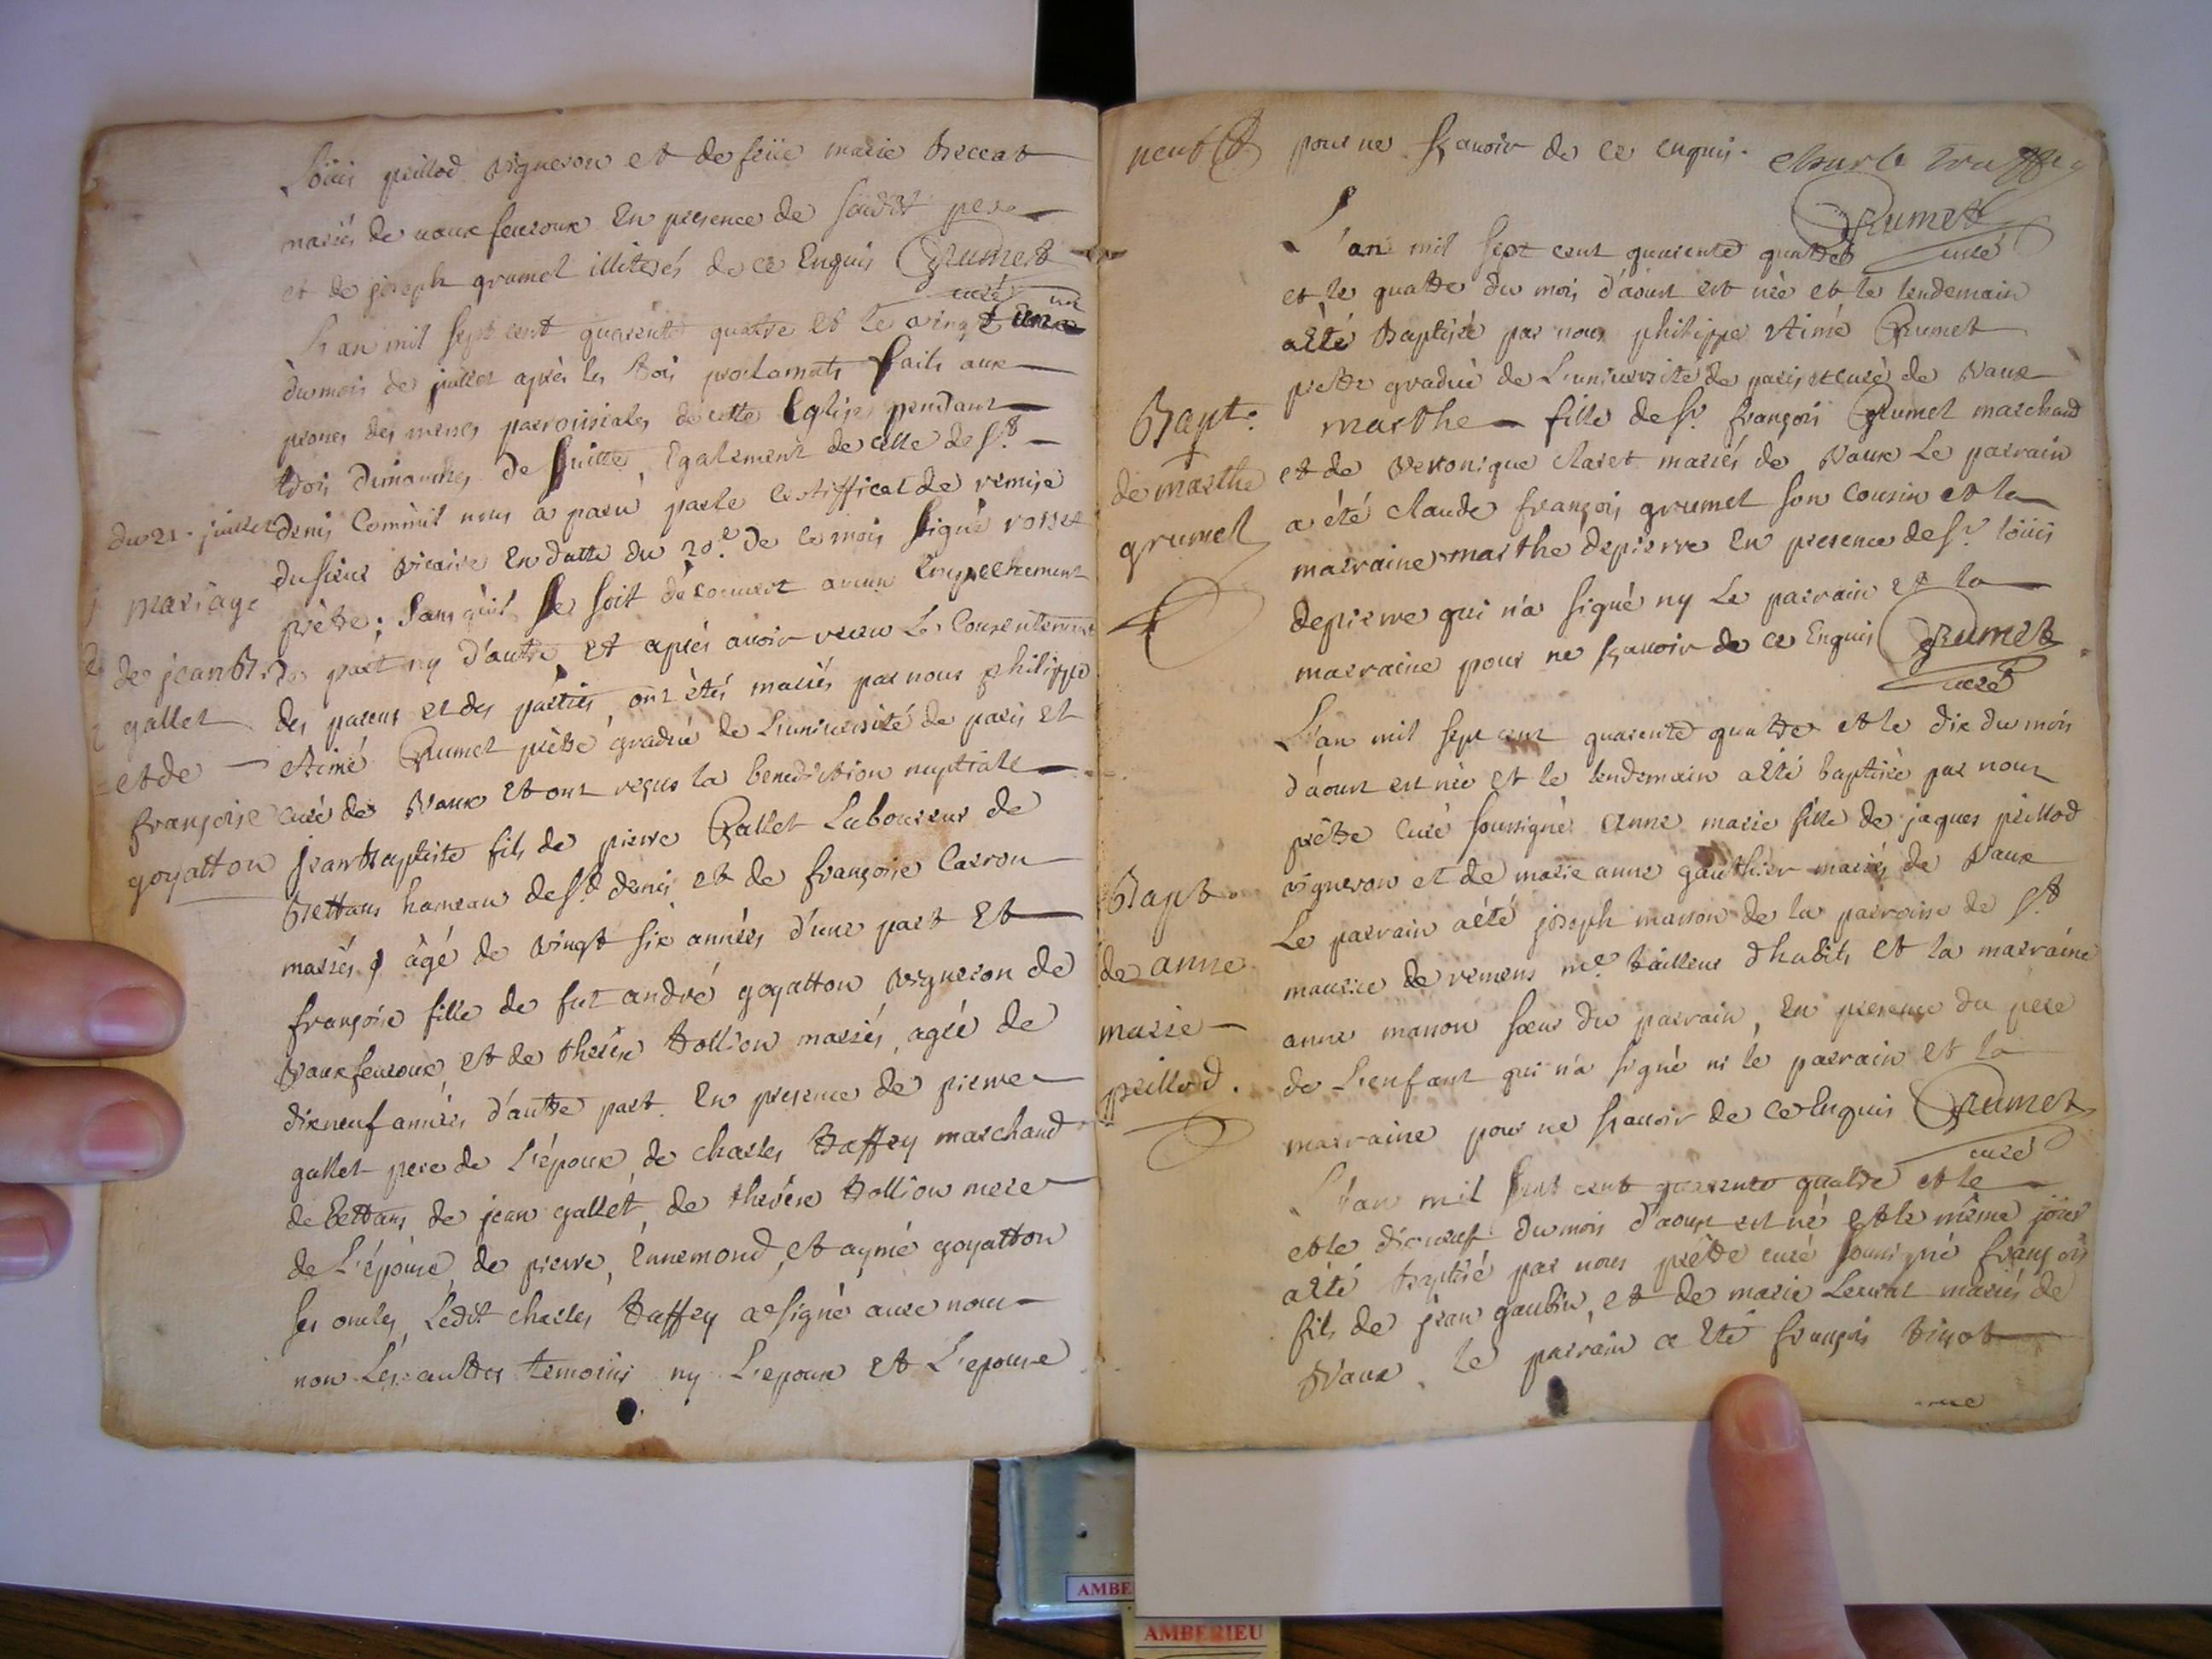 Loüis peillod vigneron et de feüe marie Beccat
mariés de vaux fevroux En presence de soudit pere
et de joseph grumet illiterés de ce Enquis Grumet
curé
L'an mil sept cent quarente quatre et le vingt un
du mois de juillet après les trois proclamats faits aux
prones des messes parroissiales de cette Eglise pendant
trois dimanches de suitte, Egalement de celle de St
du 21. juillet
denis Comme il nous a paru par le certifficat de remise
du sieur vicaire En datte du 20e de ce mois signé rosset
mariage
prêtre; sans qu'il se soit découvert aucun Empechement
de jean Bte
de part ny d'autre, et après avoir receu Le Consentement
gallet
des parens et des parties, ont étés mariés par nous philippe
et de
Aimé Grumet prêtre gradué de L'université de paris et
françoise
curé de Vaux et ont reçus la benediction nuptiale
goyatton
jean Baptiste fils de pierre Gallet Laboureur de
Bettans hameau de St denis et de françoise Carron
mariés, âgé de vingt six années d'une part Et
françoise fille de fut andré goyatton vigneron de
vaux fevroux, et de therèse tollion mariés, agée de
dixneuf années d'autre part. En presence de pierre
gallet pere de L'époux, de charles traffey marchand
de Bettans, de jean gallet, de therèse tollion mere
de L'épouse, de pierre, Ennemond, et aymé goyatton
ses oncles, Ledit charles traffey a signé avec nous
non Les autres temoins ny L'epoux et L'epouse
pour ne sçavoir de ce enquis. charle traffey
Grumet
curé
L'an mil sept cent quarente quatre
et le quatre du mois d'aoust est née et le lendemain
a été Baptisée par nous philippe Aimé Grumet
prêtre gradué de L'université de paris et curé de Vaux
Bapt.
de marthe
grumet
marthe fille de Sr. françois Grumet marchand
et de veronique claret mariés de Vaux Le parrain
a été claude françois grumet son Cousin et la
marraine marthe depierre En presence de Sr. loüis
depierre qui n'a signé ny Le parrain et la
marraine pour ne sçavoir de ce Enquis Grumet
curé
L'an mil sept cent quarente quatre et le dix du mois
d'aoust est née et le lendemain a été baptisée par nous
prêtre curé soussigné anne marie fille de jaques peillod
Bapt.
de anne
marie
peillod.
vigneron et de marie anne gauthier mariés de Vaux
Le parrain a été joseph manon de la parroisse de St
maurice de remens me. tailleur d'habits et la marraine
anne manon sœur du parrain, En presence du pere
de L'enfant qui n'a signé ni le parrain et la
marraine pour ne sçavoir de ce Enquis Grumet
curé
L'an mil sept cent quarente quatre et le
et le dixneuf du mois d'aoust est né et le même jour
a été Baptisé par nous prêtre curé soussigné françois
fils de jean gaubin, et de marie mariés de
Vaux. le parrain a été françois